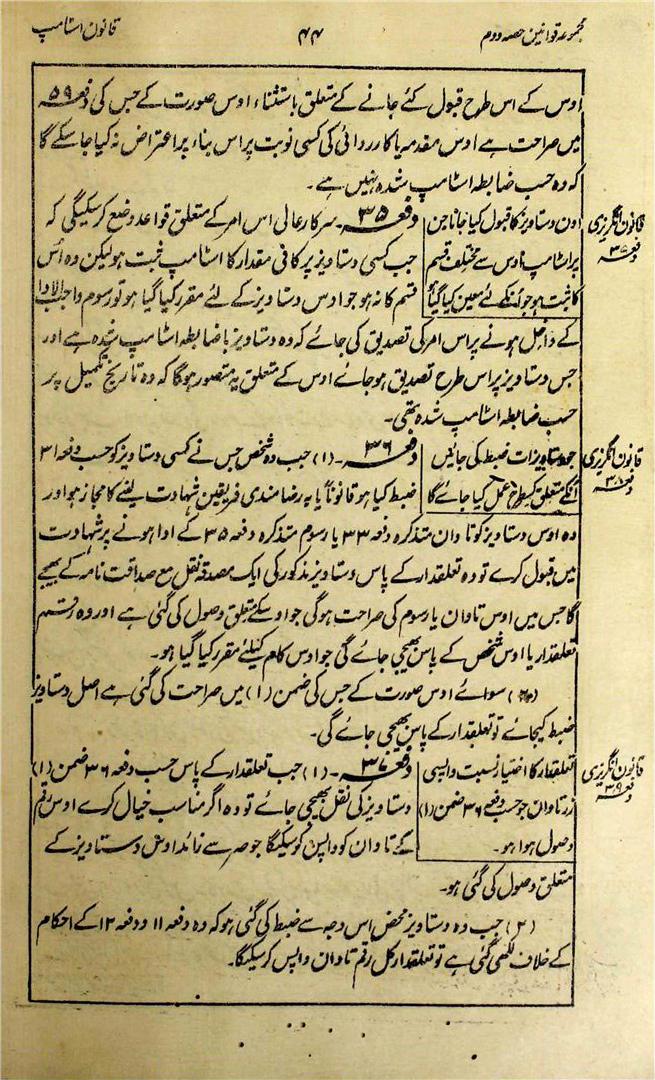 مجموعہ قوانین حصہ دوم
۴۴
قانون اسٹامپ
اوس کے اس طرح قبول کئے جانے کے متعلق باستثناء اوس صورت کے جس کی دفعہ ۵۹
میں صراحت ہے اوس مقدمہ یا کارروائی کی کسی نوبت پر اس بناء پر اعتراض نہ کیا جا سکے گا
کہ وہ حسب ضابطہ اسٹامپ شدہ نہیں ہے۔
قانون انگریزی
دفعہ ۳۷
اون دستاویز کا قبول کیا جانا جن
پر اسٹامپ اوس سے مختلف قسم
کا ثبت ہو جو انکے لئے معین کیا گیا ہو
دفعہ ۳۵۔ سرکار عالی اس امر کے متعلق قواعد وضع کر سکیگی کہ
جب کسی دستاویز پر کافی مقدار کا اسٹامپ ثبت ہو لیکن وہ اس
قسم کا نہ ہو جو اوس دستاویز کے لئے مقرر کیا گیا ہو تو رسوم واجب الادا
کے داخل ہونے پر اس امر کی تصدیق کی جائے کہ وہ دستاویز باضابطہ اسٹامپ شدہ ہے اور
جس دستاویز پر اس طرح تصدیق ہو جائے اوس کے متعلق یہ متصور ہوگا کہ وہ تاریخ تکمیل پر
حسب ضابطہ اسٹامپ شدہ تھی۔
قانون انگریزی
دفعہ ۳۸
جو دستاویزات ضبط کی جائیں
انکے متعلق کسطرح عمل کیا جائے گا
دفعہ ۳۶۔ (۱) جب وہ شخص جس نے کسی دستاویز کو حسب دفعہ ۳۱
ضبط کیا ہو قانوناً یا بہ رضامندی فریقین شہادت لینے کا مجاز ہو اور
وہ اوس دستاویز کو تاوان متذکرہ دفعہ ۳۳ یا رسوم متذکرہ دفعہ ۳۵ کے ادا ہونے پر شہادت
میں قبول کرے تو وہ تعلقدار کے پاس دستاویز مذکور کی ایک مصدقہ نقل مع صداقت نامہ کے بھیجے
گا جس میں اوس تاوان یا رسوم کی صراحت ہوگی جو اوسکے متعلق وصول کی گئی ہے اور وہ رقم
تعلقدار یا اوس شخص کے پاس بھیجی جائے گی جو اوس کام کیلئے مقرر کیا گیا ہو۔
(۲) سوائے اوس صورت کے جس کی ضمن (۱) میں صراحت کی گئی ہے اصل دستاویز
ضبط کیجائے تو تعلقدار کے پاس بھیجی جائے گی۔
قانون انگریزی
دفعہ ۳۹
تعلقدار کا اختیار نسبت واپسی
زر تاوان جو حسب دفعہ ۳۶ ضمن (۱)
وصول ہوا ہو۔
دفعہ ۳۷۔ (۱) جب تعلقدار کے پاس حسب دفعہ ۳۶ ضمن (۱)
دستاویز کی نقل بھیجی جائے تو وہ اگر مناسب خیال کرے اوس رقم
کے تاوان کو واپس کر سکیگا جو صہ سے زائد اوس دستاویز کے
متعلق وصول کی گئی ہو۔
(۲) جب وہ دستاویز محض اس وجہ سے ضبط کی گئی ہو کہ وہ دفعہ ۱۱ و دفعہ ۱۲ کے احکام
کے خلاف لکھی گئی ہے تو تعلقدار کل رقم تاوان واپس کر سکیگا۔